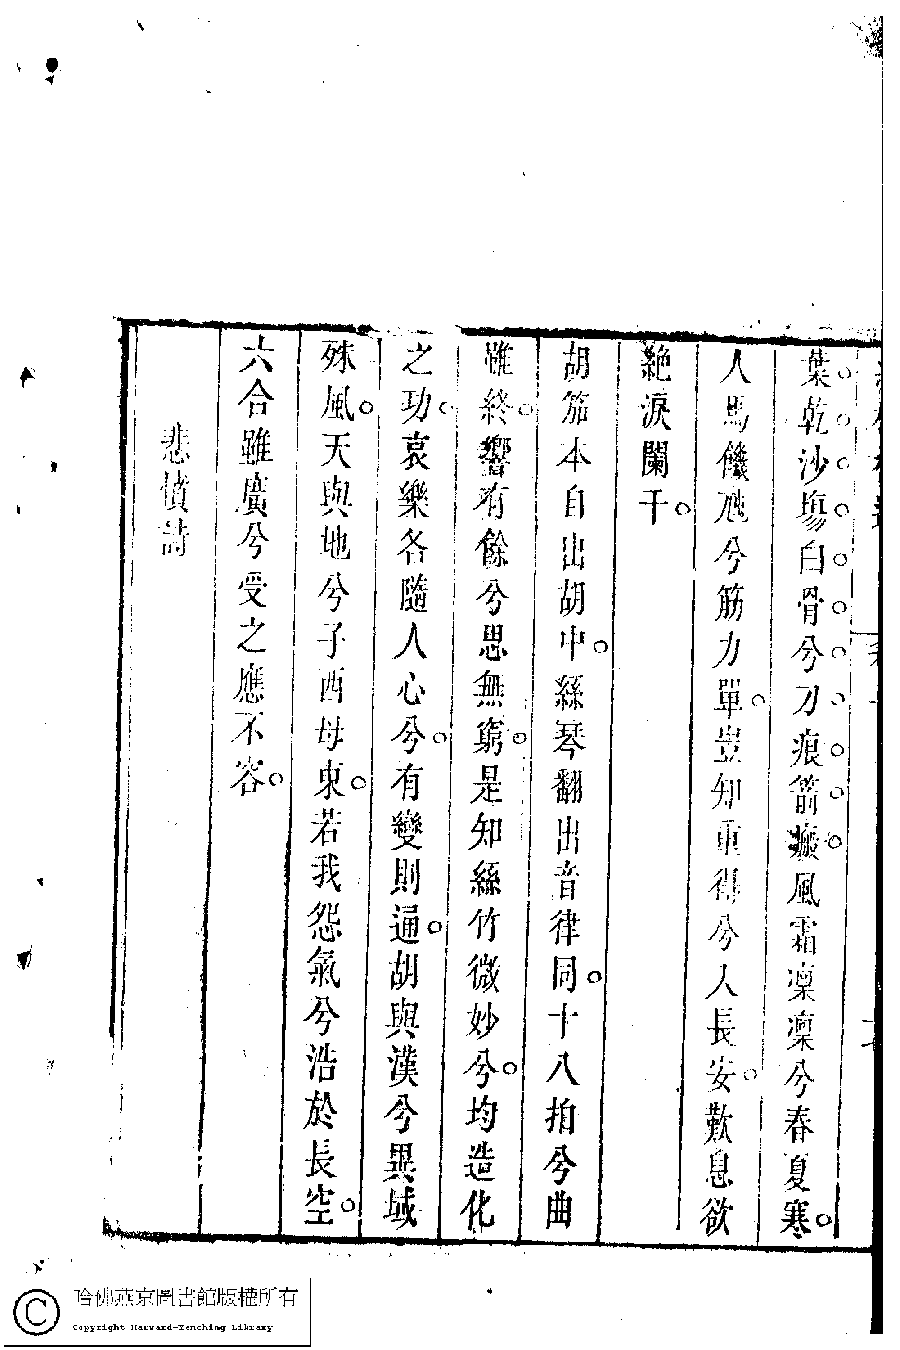 葉乾沙塲白骨兮刀痕箭癥風霜凜凜兮春夏寒
人馬饑虺兮筋力單豈知重得兮入長安歎息欲
絶淚闌干
胡笳本自出胡中絲琴翻出音律同十八拍兮曲
雖終響有餘兮思無窮是知絲竹微妙兮均造化
之功哀樂各隨人心兮有變則通胡與漢兮異域
殊風天與地兮子西母東若我怨氣兮浩於長空
六合雖廣兮受之應不容
悲憤詩
哈佛燕京圖書館版權所有
Copyright Harvard-Yenching Library